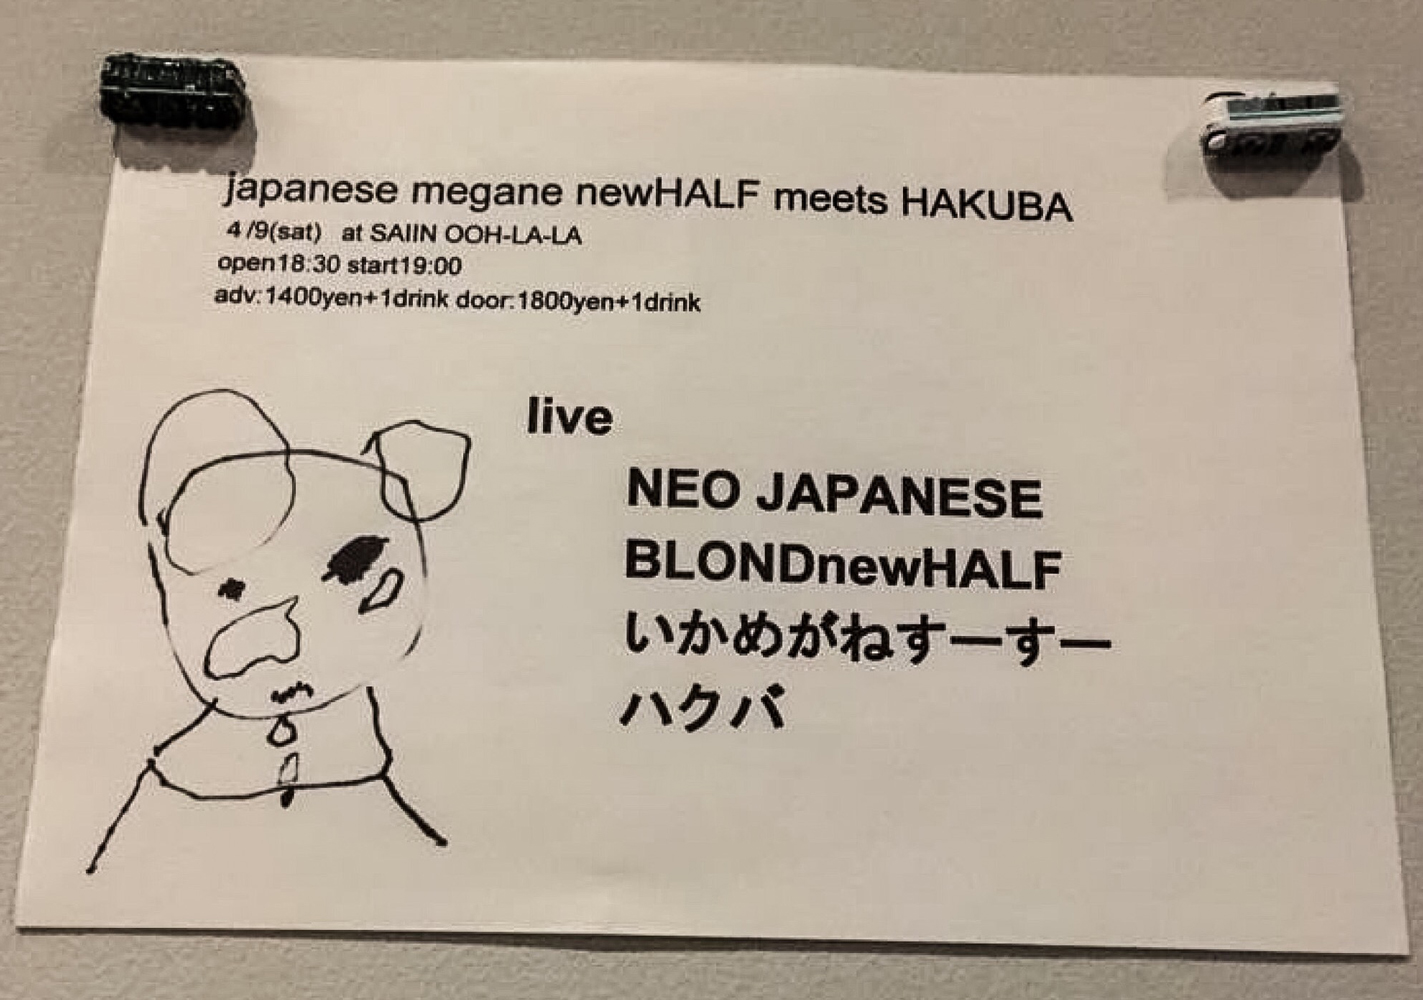 japanese megane newHALF meets HAKUBA
4/9(sat) at SAIIN OOH-LA-LA
open18:30 start19:00
adv:1400yen+1drink door:1800yen+1drink
live
NEO JAPANESE
BLONDnewHALF
いかめがねすーすー
ハクバ